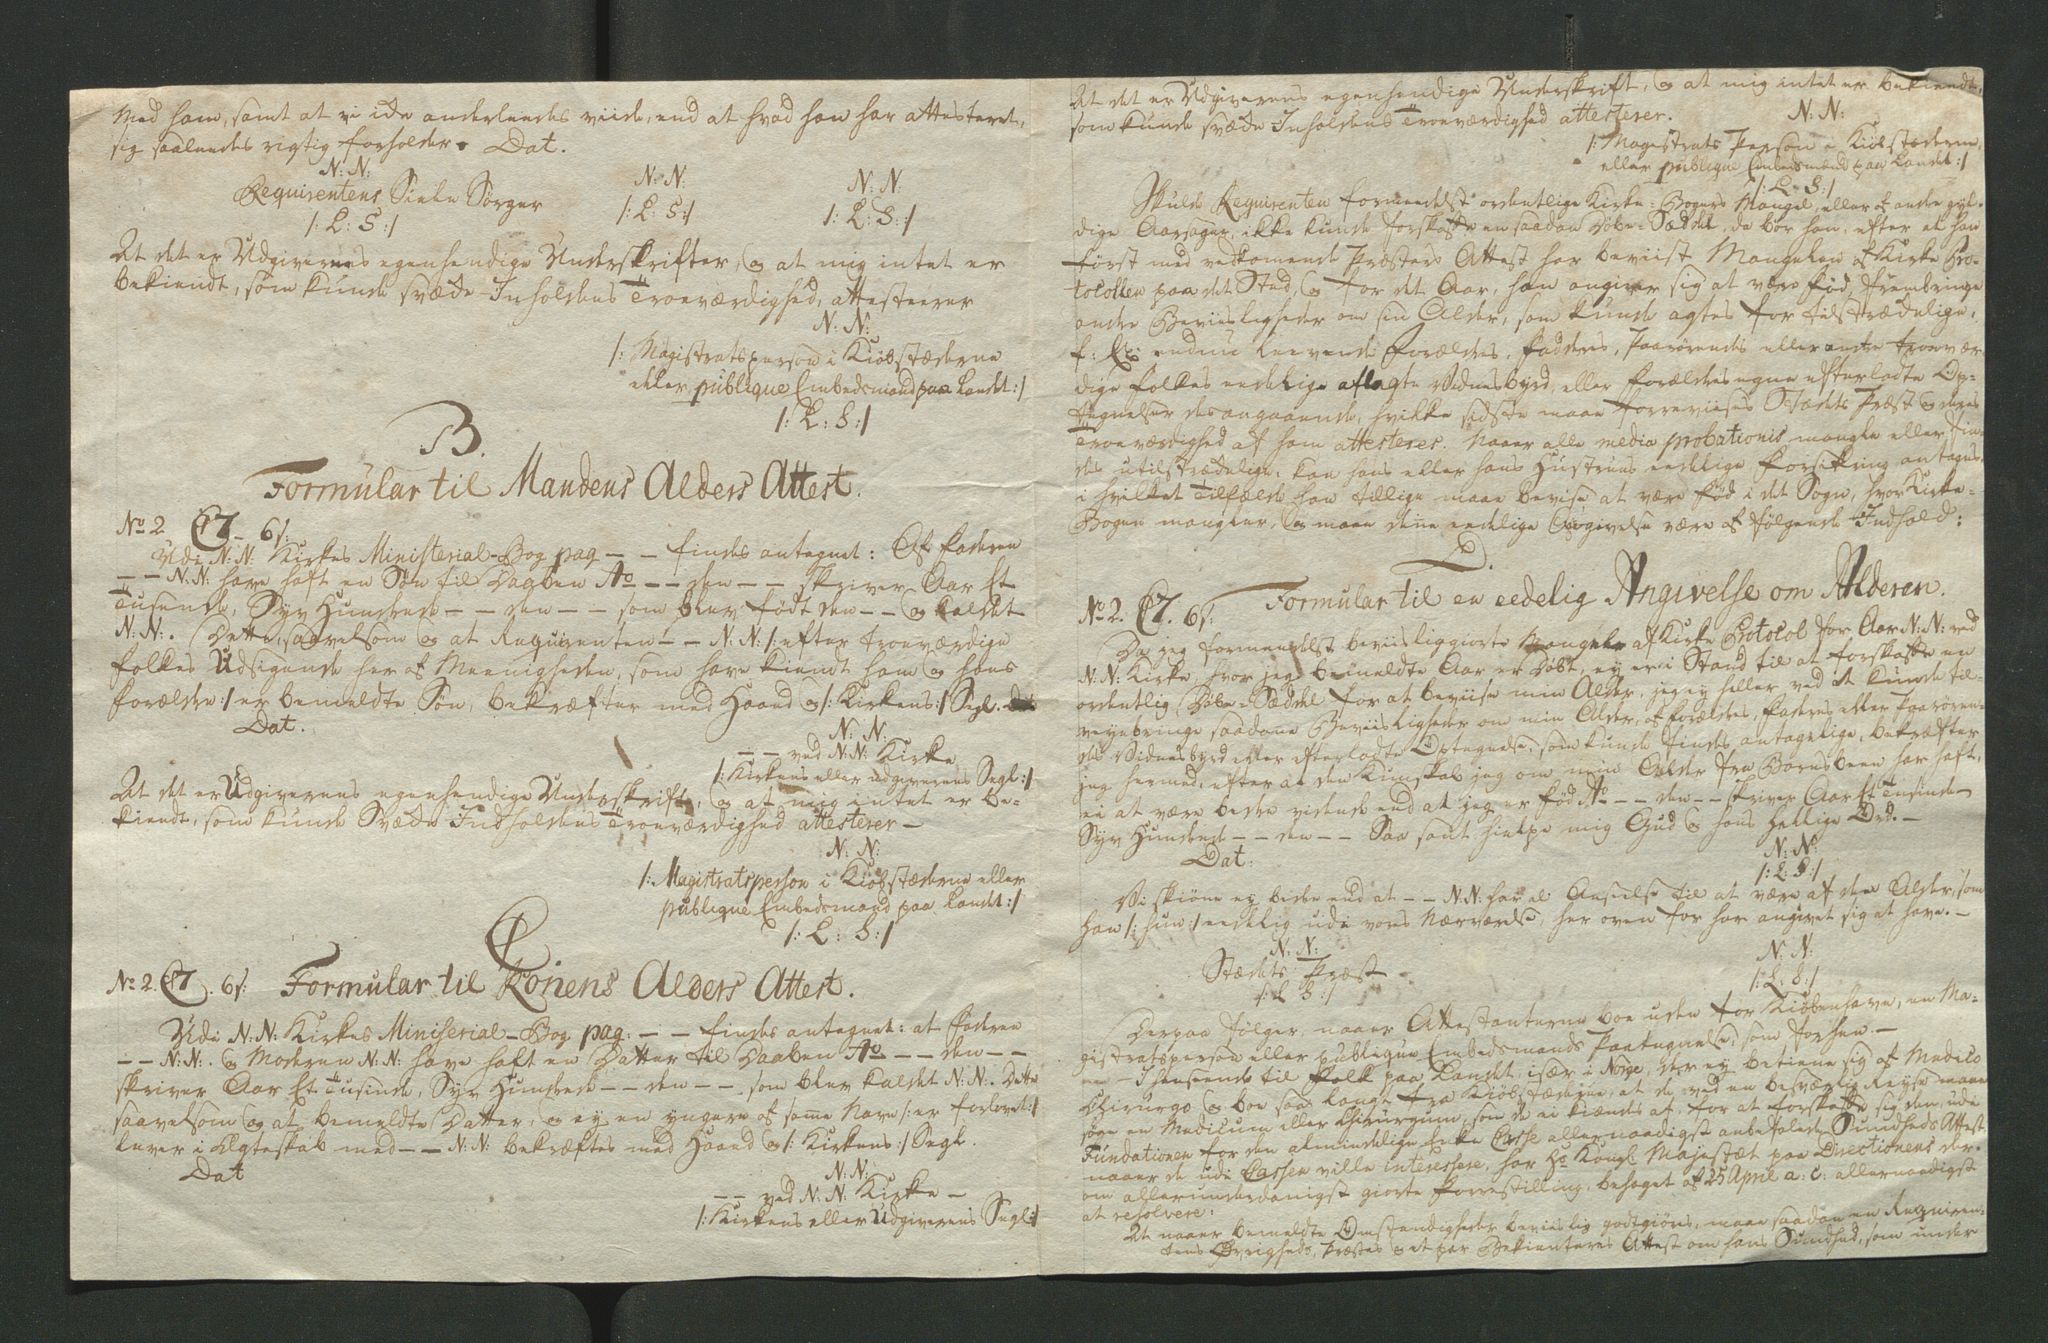 Med ham, samt at vi ide anderleedes viide, end at hvad han har attesteret,
sig saaleedes rigtig forholder. Dat.
N: N: N: N: N: N:
Requirentens Siele Sørger
/: L: S :/ /: L: S :/ /: L: S :/
At det er Udgivernes egenhendige Underskrifter, og at mig intet er
bekiendt, som kunde svæde Inholdens Troeværdighed, attesterer
N: N:
/: Magistratsperson i Kiøbstæderne
eller publique Embedsmand paa Landet :/
/: L: S :/
B.
Formular til Mandens Alders Attest.
No 2 C7. 6s.
Udi N: N: Kirkes Ministerial-Bog pag — — findes antegnet: At Faderen
— — N: N: have haft en Søn til Daaben Ao — — den — — skriver Aar Et
Tusende, Syv Hundrede — — den — — som blev født den — — og kaldet
N: N:. Dette, saavelsom og at Requirenten — — N: N: /: efter troeværdige
Folkes Udsigende her af Meenigheden, som have kiendt ham og hans
Forældre :/ er bemeldte Søn, bekræfter med Haand og /: Kirkens :/ Segl.
Dat.
N: N:
— — ved N: N: Kirke
/: Kirkens eller udgiverens Segl :/
At det er Udgiverens egenhendige Underskrift, og at mig intet er be-
kiendt, som kunde Svæde Indholdens Troeværdighed attesterer —
N: N:
/: Magistratsperson i Kiøbstæderne eller
publique Embedsmand paa Landet :/
/: L: S :/
C
No 2. C7. 6s: Formular til Konens Alders Attest.
Udi N: N: Kirkes Miniserial-Bog pag: — — findes antegnet: at Faderen
— — N: N:. og Moderen N: N: have haft en Datter til Daaben Ao — — den — —
skriver Aar Et Tusinde, Syv Hundrede — — den — — som blev kaldet N: N:. Dette
saavelsom og at bemeldte Datter, og ey en yngere af samme Navn /: er forlovet :/
lever i Ægteskab med — — N: N: bekræftes med Haand og /: Kirkens :/ Segl.
Dat
N: N:
— — ved N: N: Kirke —
/: Kirkens eller Udgiverens Segl :/
At det er Udgiverens egenhendige Underskrift, og at mig intet er bekiendt,
som kunde svæde Inholdens Troeværdighed attesterer.
N: N:
/: Magistrats Person i Kiøbstæderne,
eller publique Embedsmænd paa Landet :/
/: L: S :/
Skulde Requirenten formedelst ordentlige Kirke-Bogers Mangel, eller af andre gyl-
dige Aarsager, ikke kunde forskaffe en saadan Døbe-Sæddel, da bør han, efter at han
først med vedkomende Præsters Attest har beviist Mangelen af Kirke Pro-
tocollen paa det Sted, og for det Aar, han angiver sig at være fød, frembringe
andre Beviisligheder om sin Alder, som kunde agtes for tilstrædelige,
f: Ex: endnu levende Forældres, Fadderes, Paarørendes eller andre troevær-
dige Folkes eedelige aflagte Vidnesbyrd, eller Forældres egne efterladte Op-
tegnelser desangaaende, hvilke sidste maae foreviises Stædets Præst og deres
Troeværdighed af ham attesteres. Naar alle media probationis mangle eller fin-
des utilstrædelige, kan hans eller hans Hustrues eedelige Forsikring antages,
i hvilket Tilfælde han tillige maae bevise at være fød i det Sogn, hvor Kirke-
Bogen mangler, og maae dene eedelige Angivelse være af følgende Indhold:
D.
No 2. C7. 6s: Formular til en eedelig Angivelse om Alderen.
Da jeg formedelst beviisliggiorte Mangel af Kirke Protocol for Aar N: N: ved
N: N: Kirke, hvor jeg bemeldte Aar er døbt, ey er i Stand til at forskaffe en
ordentlig Døbe-Sæddel for at beviise min Alder, jeg ey heller ved at kunde til-
veyebringe saadane Beviisligheder om min Alder, af Forældres, Faderes eller Paarøren-
des Vidnesbyrd eller efterladte Optegnelse, som kunde findes antagelige, bekræfter
jeg hermed, efter at den Kunskab jeg om min Alder fra Barnsbeen har haft,
ei at være bedre vidende end at jeg er fød Ao — — den — — skriver Aar Et Tusinde
Syv Hundrede — — den — — Saa sant hielpe mig Gud og hans hellige Ord. —
Dat:
N: N:
/: L: S :/
Vi skiøne ey bedre end at — — N: N: har al Anseelse til at være af den Alder, som
han /: hun :/ eedelig udi vores Nærværelse, her oven for har angivet sig at have. —
N: N: N: N:
Stædets Præst
/: L: S :/ /: L: S :/
Derpaa følger, naar Attestanterne boe uden for Kiøbenhavn, en Ma-
gistratsperson eller publique Embedsmands Paategnelse, som forhen. —
— I henseende til Folk paa Landet, især i Norge, der ey betiene sig af Medico
Chirurgo og boe saa langt fra Kiøbstæderne, at de ved en besværlig Reyse maae
søge en Medicum eller Chirurgum, som de ei kiendes af, for at forskaffe sig den, udi
Fundationen for den almindelige Enke Casse allernaadigst anbefalede Sundheds Attest,
naar de udi Cassen ville interessere, har Ho Kongl Majestæt paa Directionens der-
om allerunderdanigst giorte Forrestilling, behaget af 25 April a: c: allernaadigst
at resolvere:
At naar bemeldte Omstændigheder beviislig godtgiøres, maae saadan en Requiren-
tens Øvrigheds, Præstes og et par Bekienteres Attest om hans Sundhed, som under